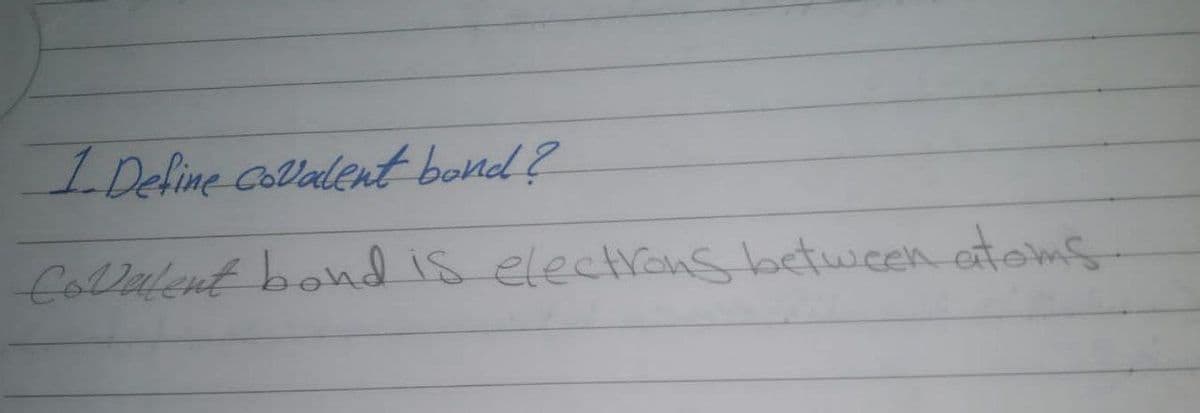 1. Define Covalent bond?
Covalent bond is electrons between atoms.